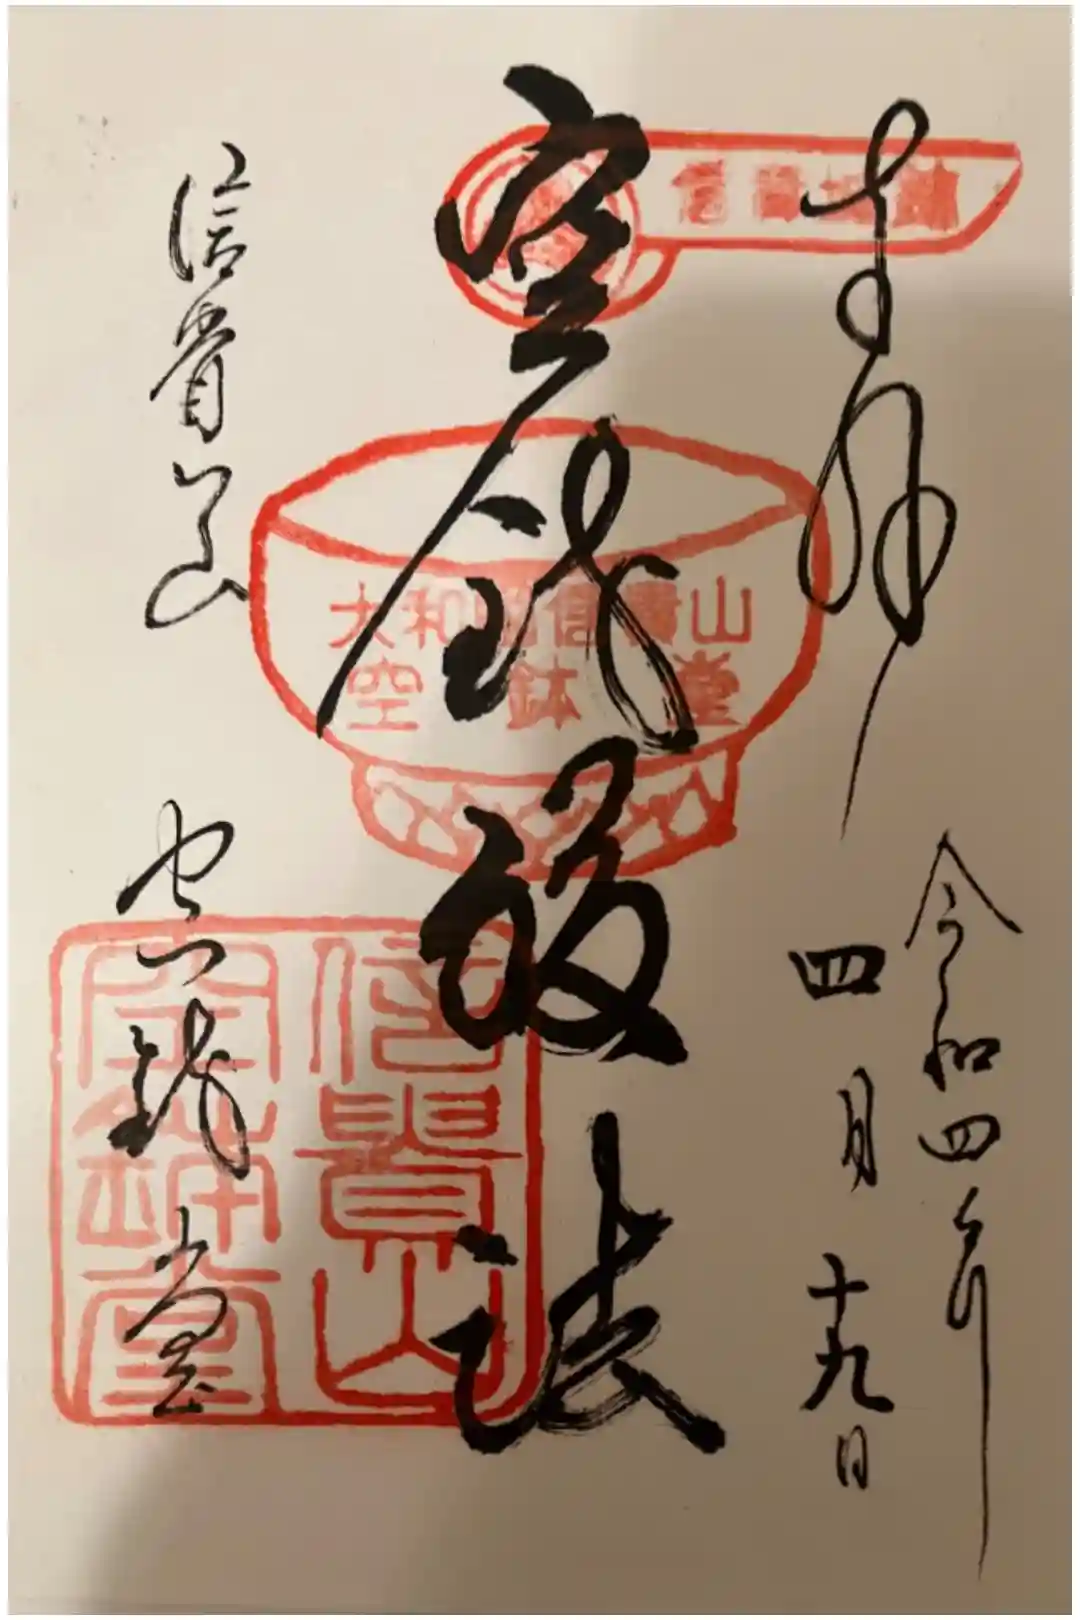 奉拝
令和四年
四月十九日
空鉢護法
信貴山
空鉢堂
大和國信貴山
空鉢堂
信貴山
空鉢堂